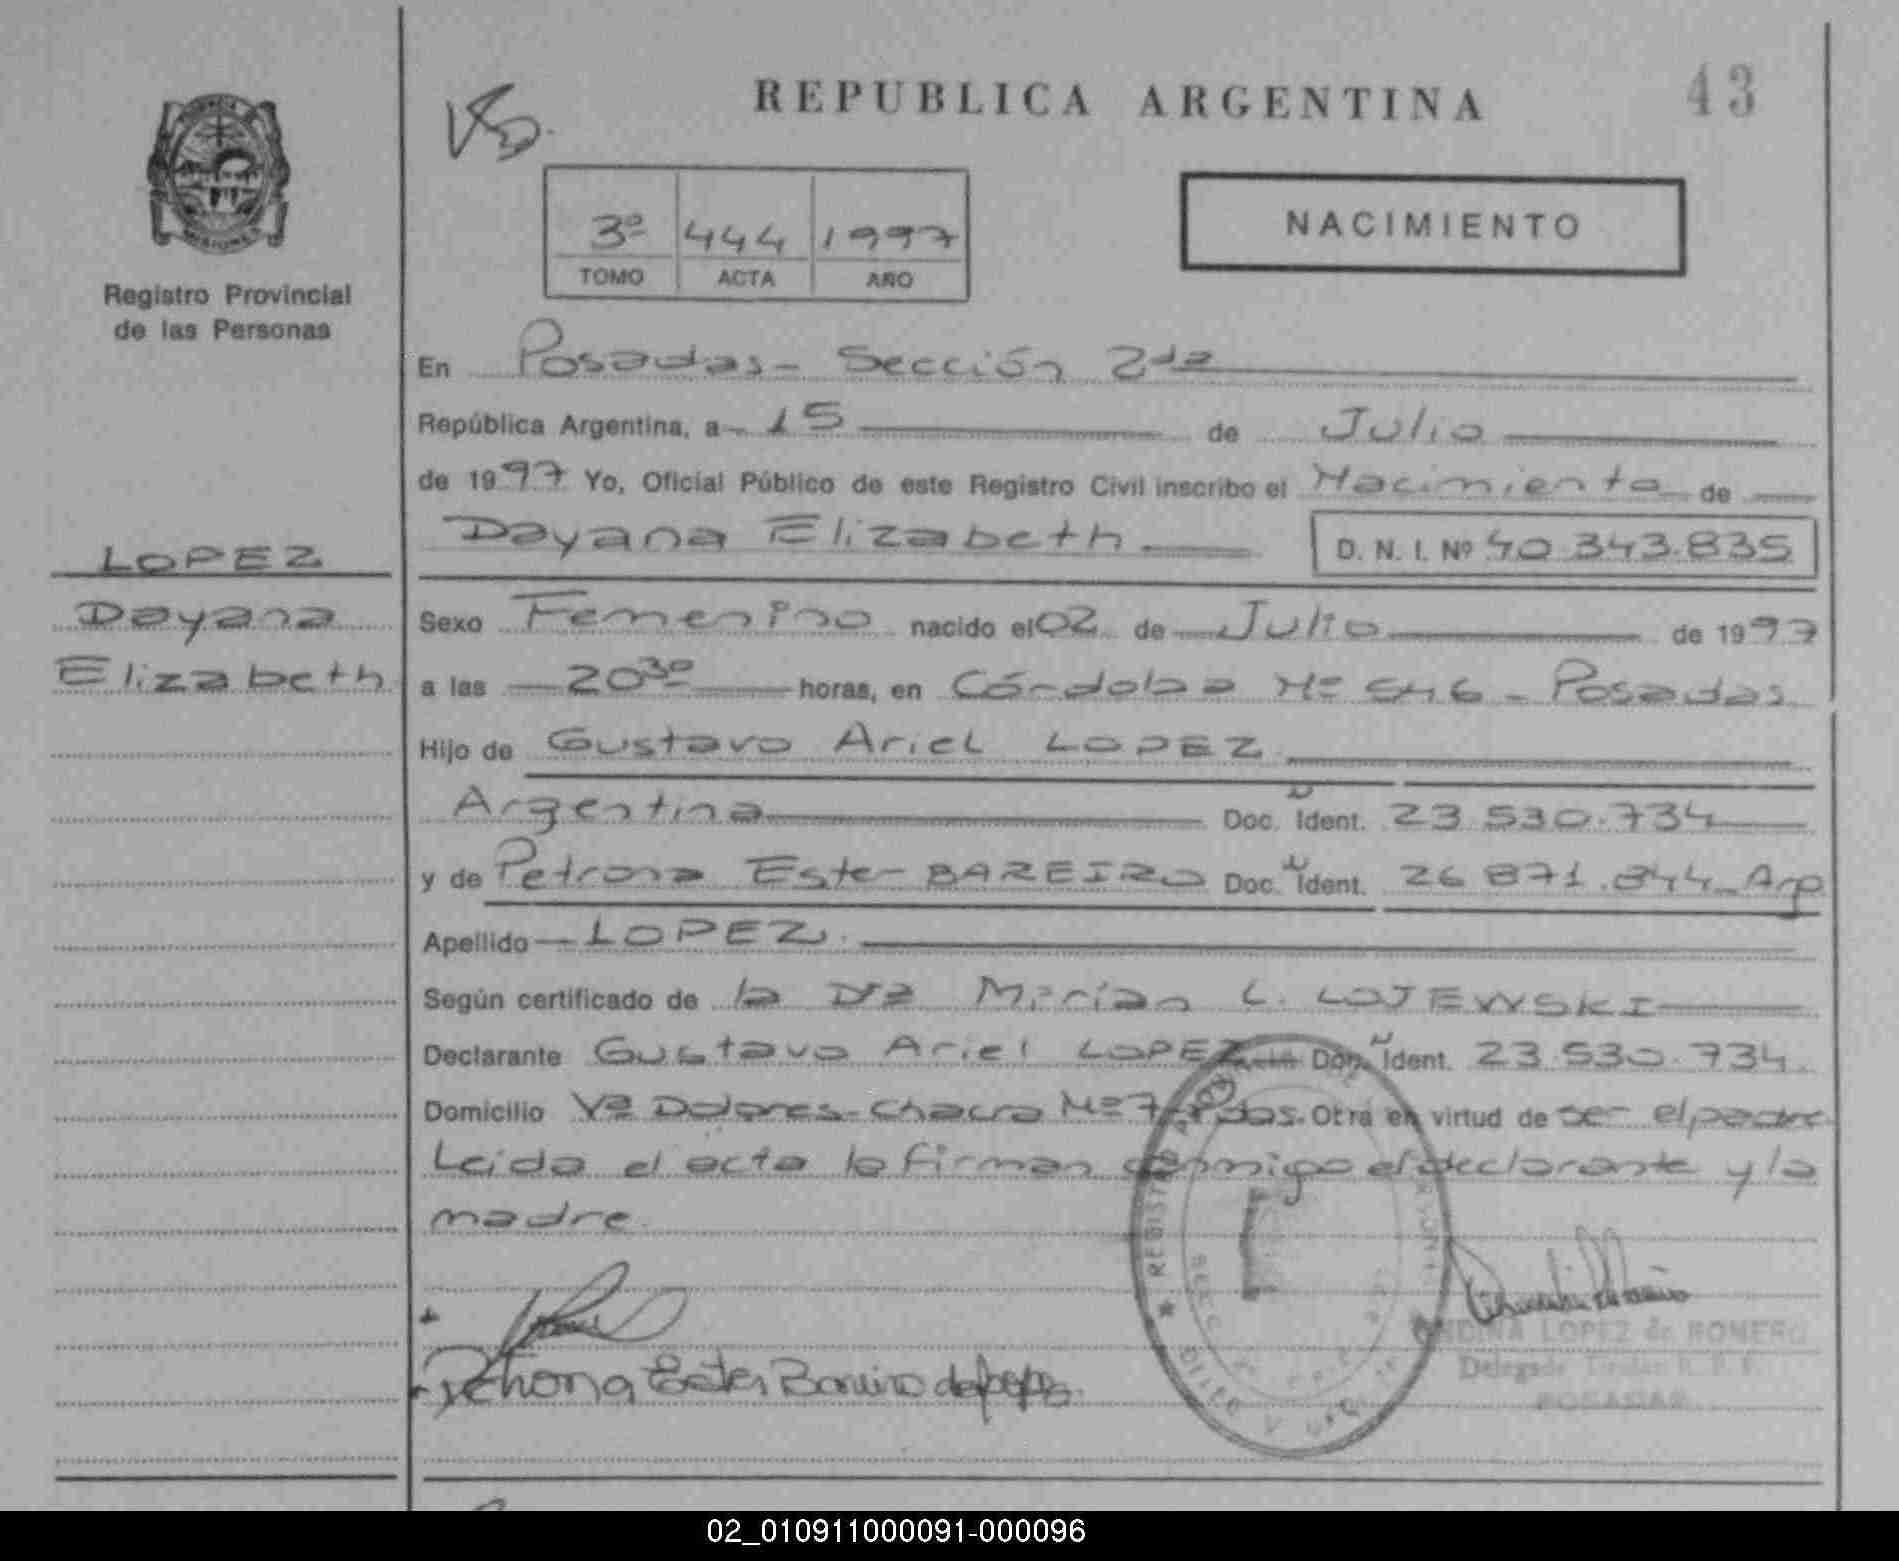 REPUBLICA ARGENTINA
43
3º 444 1997
TOMO ACTA AÑO
NACIMIENTO
MISIONES
Registro Provincial
de las Personas
En Posadas - Sección 2da
República Argentina, a 15 de Julio
de 1997 Yo, Oficial Público de este Registro Civil inscribo el Nacimiento de
Dayana Elizabeth D. N. I. Nº 40.343.835
LOPEZ
Dayana
Elizabeth
Sexo Femenino nacido el 02 de Julio de 1997
a las 20³⁰ horas, en Córdoba Nº 546 - Posadas
Hijo de Gustavo Ariel LOPEZ
Argentina Doc. Ident. 23.530.734
y de Petrona Ester BAREIRO Doc. Ident. 26.871.844 - Arg
Apellido LOPEZ.
Según certificado de la Dra Mirian L. LOJEWSKI
Declarante Gustavo Ariel LOPEZ Doc. Ident. 23.530.734.
Domicilio Vª Dolores - Chacra Nº 7 - Pdas. Otra en virtud de ser el padre
Leida el acta la firman conmigo el declarante y la
madre.
Petrona Ester Bareiro de Lopez
REGISTRO
LOPEZ de ROMERO
Delegada Titular R. P. P.
POSADAS
02_010911000091-000096